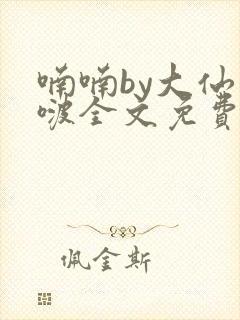 喃喃by大仙
啵全文免费
佩金斯